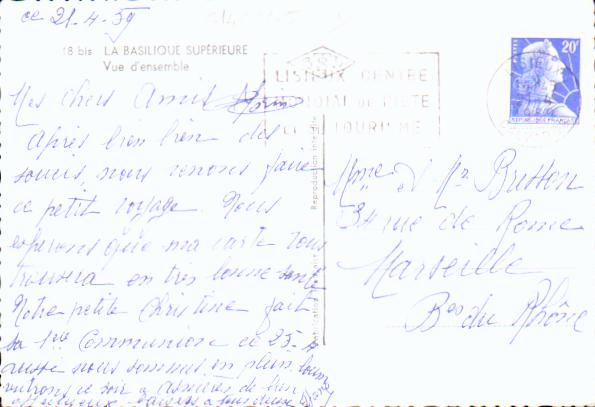 ce 21-4-59
18 bis LA BASILIQUE SUPÉRIEURE
Vue d'ensemble
LISIEUX CENTRE
MONDIAL DE PIÉTÉ
ET DE TOURISME
POSTES
20F
RÉPUBLIQUE FRANÇAISE
Mes chers Amis
Après bien bien des
soucis, nous venons faire
ce petit voyage. Nous
espérons que ma carte vous
trouvera en très bonne santé
Notre petite Christine fait
sa 1ère Communion ce 25-
aussi nous sommes en plein
rentrons ce soir à Asnières de bien
affectueux baisers à tous deux
Reproduction interdite
Mme & Mr Brisson
34 rue de Rome
Marseille
Bes du Rhône